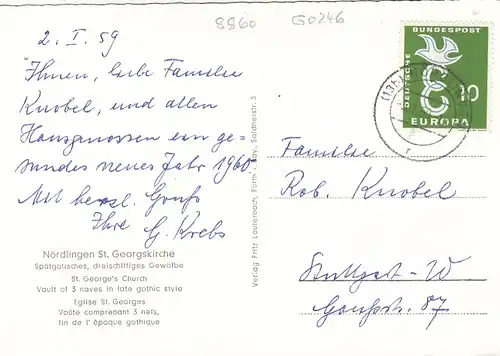 8860 G0246
2. I. 59
Ihnen, liebe Familie
Knobel, und allen
Hausgenossen ein ge-
sundes neues Jahr 1960.
Mit herzl. Gruß
Ihre G. Krebs
Nördlingen St. Georgskirche
Spätgotisches, dreischiffiges Gewölbe
St. George's Church
Vault of 3 naves in late gothic style
Eglise St. Georges
Voûte comprenant 3 nefs,
fin de l' époque gothique
Verlag Fritz Lauterbach, Fürth i. Bay. Saldnerstr. 3
DEUTSCHE
BUNDESPOST
10
EUROPA
(13b)
Familie
Rob. Knobel
Stuttgart-W
Gaußstr. 87